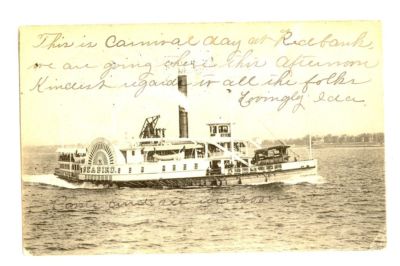 This is Carnival day at Redbank,
we are going there this Afternoon
Kindest regards to all the folks
Lovingly Ida
SEABIRD.